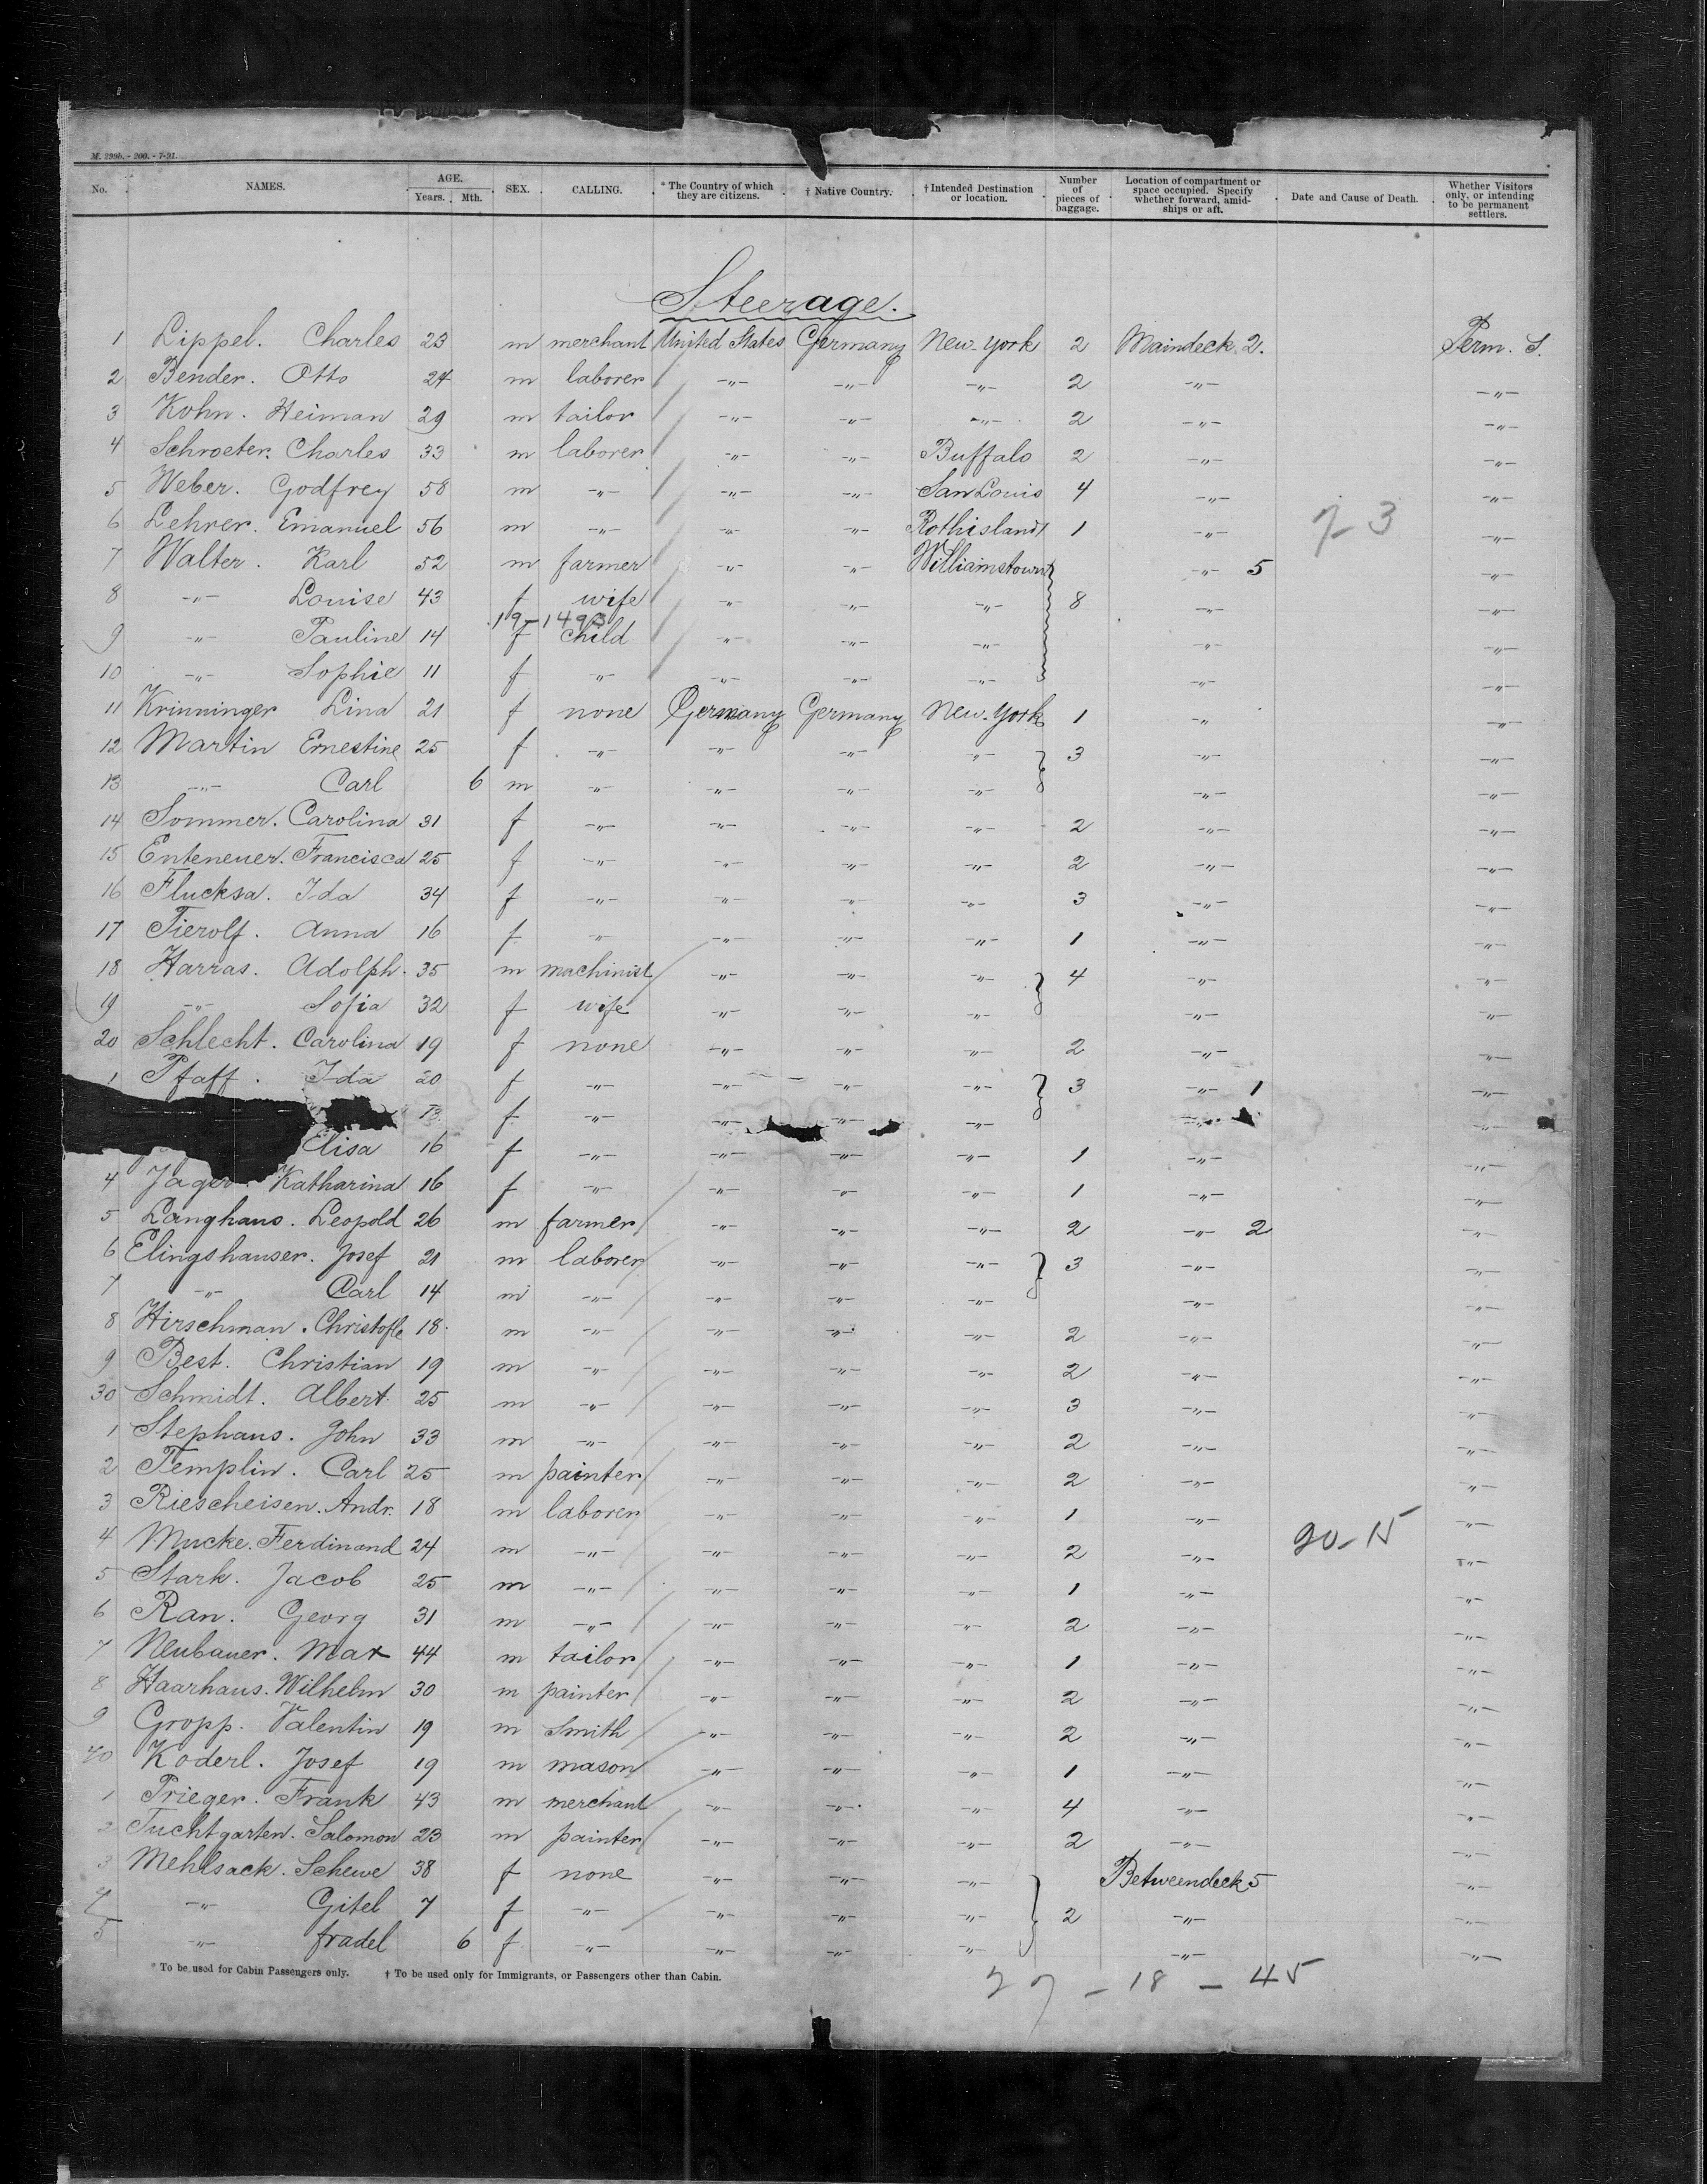 M. 299b. - 200. - 7-91.
No. NAMES. AGE. Years. Mth. SEX. CALLING. * The Country of which they are citizens. † Native Country. † Intended Destination or location. Number of pieces of baggage. Location of compartment or space occupied. Specify whether forward, amidships or aft. Date and Cause of Death. Whether Visitors only, or intending to be permanent settlers.
Steerage.
1 Lippel. Charles 23 m merchant United States Germany New-York 2 Maindeck 2. Perm. S.
2 Bender. Otto 24 m laborer -"- -"- -"- 2 -"- -"-
3 Kohn. Heiman 29 m tailor -"- -"- -"- 2 -"- -"-
4 Schroeter. Charles 33 m laborer -"- -"- Buffalo 2 -"- -"-
5 Weber. Godfrey 58 m -"- -"- -"- San Louis 4 -"- -"-
6 Lehrer. Emanuel 56 m -"- -"- -"- Rothisland 1 -"- 7-3 -"-
7 Walter. Karl 52 m farmer -"- -"- Williamstown -"- 5 -"-
8 -"- Louise 43 f wife -"- -"- -"- 8 -"- -"-
19-1493
9 -"- Pauline 14 f child -"- -"- -"- -"- -"-
10 -"- Sophie 11 f -"- -"- -"- -"- -"- -"-
11 Krinninger Lina 21 f none Germany Germany New-York 1 -"- -"-
12 Martin Ernestine 25 f -"- -"- -"- -"- 3 -"- -"-
13 -"- Carl 6 m -"- -"- -"- -"- -"- -"-
14 Sommer. Carolina 31 f -"- -"- -"- -"- 2 -"- -"-
15 Enteneuer. Francisca 25 f -"- -"- -"- -"- 2 -"- -"-
16 Flucksa. Ida 34 f -"- -"- -"- -"- 3 -"- -"-
17 Tierolf. Anna 16 f -"- -"- -"- -"- 1 -"- -"-
18 Harras. Adolph. 35 m machinist -"- -"- -"- 4 -"- -"-
19 -"- Sofia 32 f wife -"- -"- -"- -"- -"-
20 Schlecht. Carolina 19 f none -"- -"- -"- 2 -"- -"-
1 Pfaff. Ida 20 f -"- -"- -"- -"- 3 -"- 1 -"-
13 f. -"- -"- -"- -"- -"- -"-
Elisa 16 f -"- -"- -"- -"- 1 -"- -"-
4 Jager Katharina 16 f -"- -"- -"- -"- 1 -"- -"-
5 Langhans. Leopold 26 m farmer -"- -"- -"- 2 -"- 2 -"-
6 Elingshauser. Josef 21 m laborer -"- -"- -"- 3 -"- -"-
7 -"- Carl 14 m -"- -"- -"- -"- -"- -"-
8 Hirschman. Christofle 18 m -"- -"- -"- -"- 2 -"- -"-
9 Best. Christian 19 m -"- -"- -"- -"- 2 -"- -"-
30 Schmidt. Albert. 25 m -"- -"- -"- -"- 3 -"- -"-
1 Stephans. John 33 m -"- -"- -"- -"- 2 -"- -"-
2 Templin. Carl 25 m painter -"- -"- -"- 2 -"- -"-
3 Riescheisen. Andr. 18 m laborer -"- -"- -"- 1 -"- -"-
4 Mucke. Ferdinand 24 m -"- -"- -"- -"- 2 -"- 20-15 -"-
5 Stark. Jacob 25 m -"- -"- -"- -"- 1 -"- -"-
6 Ran. Georg 31 m -"- -"- -"- -"- 2 -"- -"-
7 Neubauer. Max 44 m tailor -"- -"- -"- 1 -"- -"-
8 Haarhaus. Wilhelm 30 m painter -"- -"- -"- 2 -"- -"-
9 Gropp. Valentin 19 m Smith -"- -"- -"- 2 -"- -"-
40 Koderl. Josef 19 m mason -"- -"- -"- 1 -"- -"-
1 Prieger. Frank 43 m merchant -"- -"- -"- 4 -"- -"-
2 Tuchtgarten. Salomon 23 m painter -"- -"- -"- 2 -"- -"-
3 Mehlsack. Schewe 38 f none -"- -"- -"- Betweendeck 5 -"-
4 -"- Gitel 7 f -"- -"- -"- -"- 2 -"- -"-
5 -"- fradel 6 f -"- -"- -"- -"- -"- -"-
* To be used for Cabin Passengers only. † To be used only for Immigrants, or Passengers other than Cabin.
27 - 18 - 45